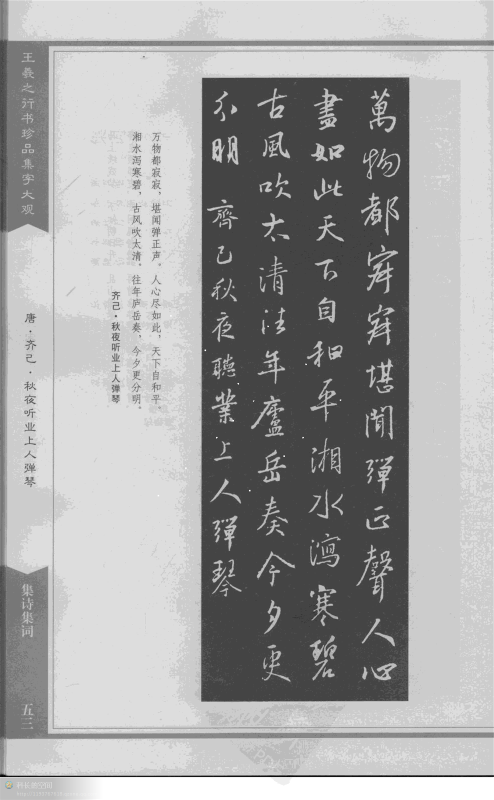 萬物都寂寂堪聞彈正聲人心
盡如此天下自和平湘水瀉寒碧
古風吹太清往年廬岳奏今夕更
分明 齊己秋夜聽業上人彈琴
万物都寂寂，堪闻弹正声。人心尽如此，天下自和平。
湘水泻寒碧，古风吹太清。往年庐岳奏，今夕更分明。
齐己·秋夜听业上人弹琴
王羲之行书珍品集字大观
唐·齐己·秋夜听业上人弹琴
集诗集词
五三